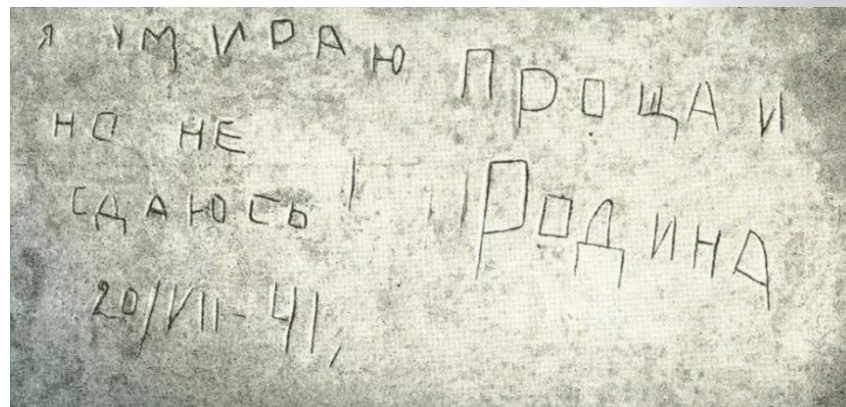 Я УМИРАЮ
НО НЕ
СДАЮСЬ!
20/VII-41,
ПРОЩАИ
РОДИНА